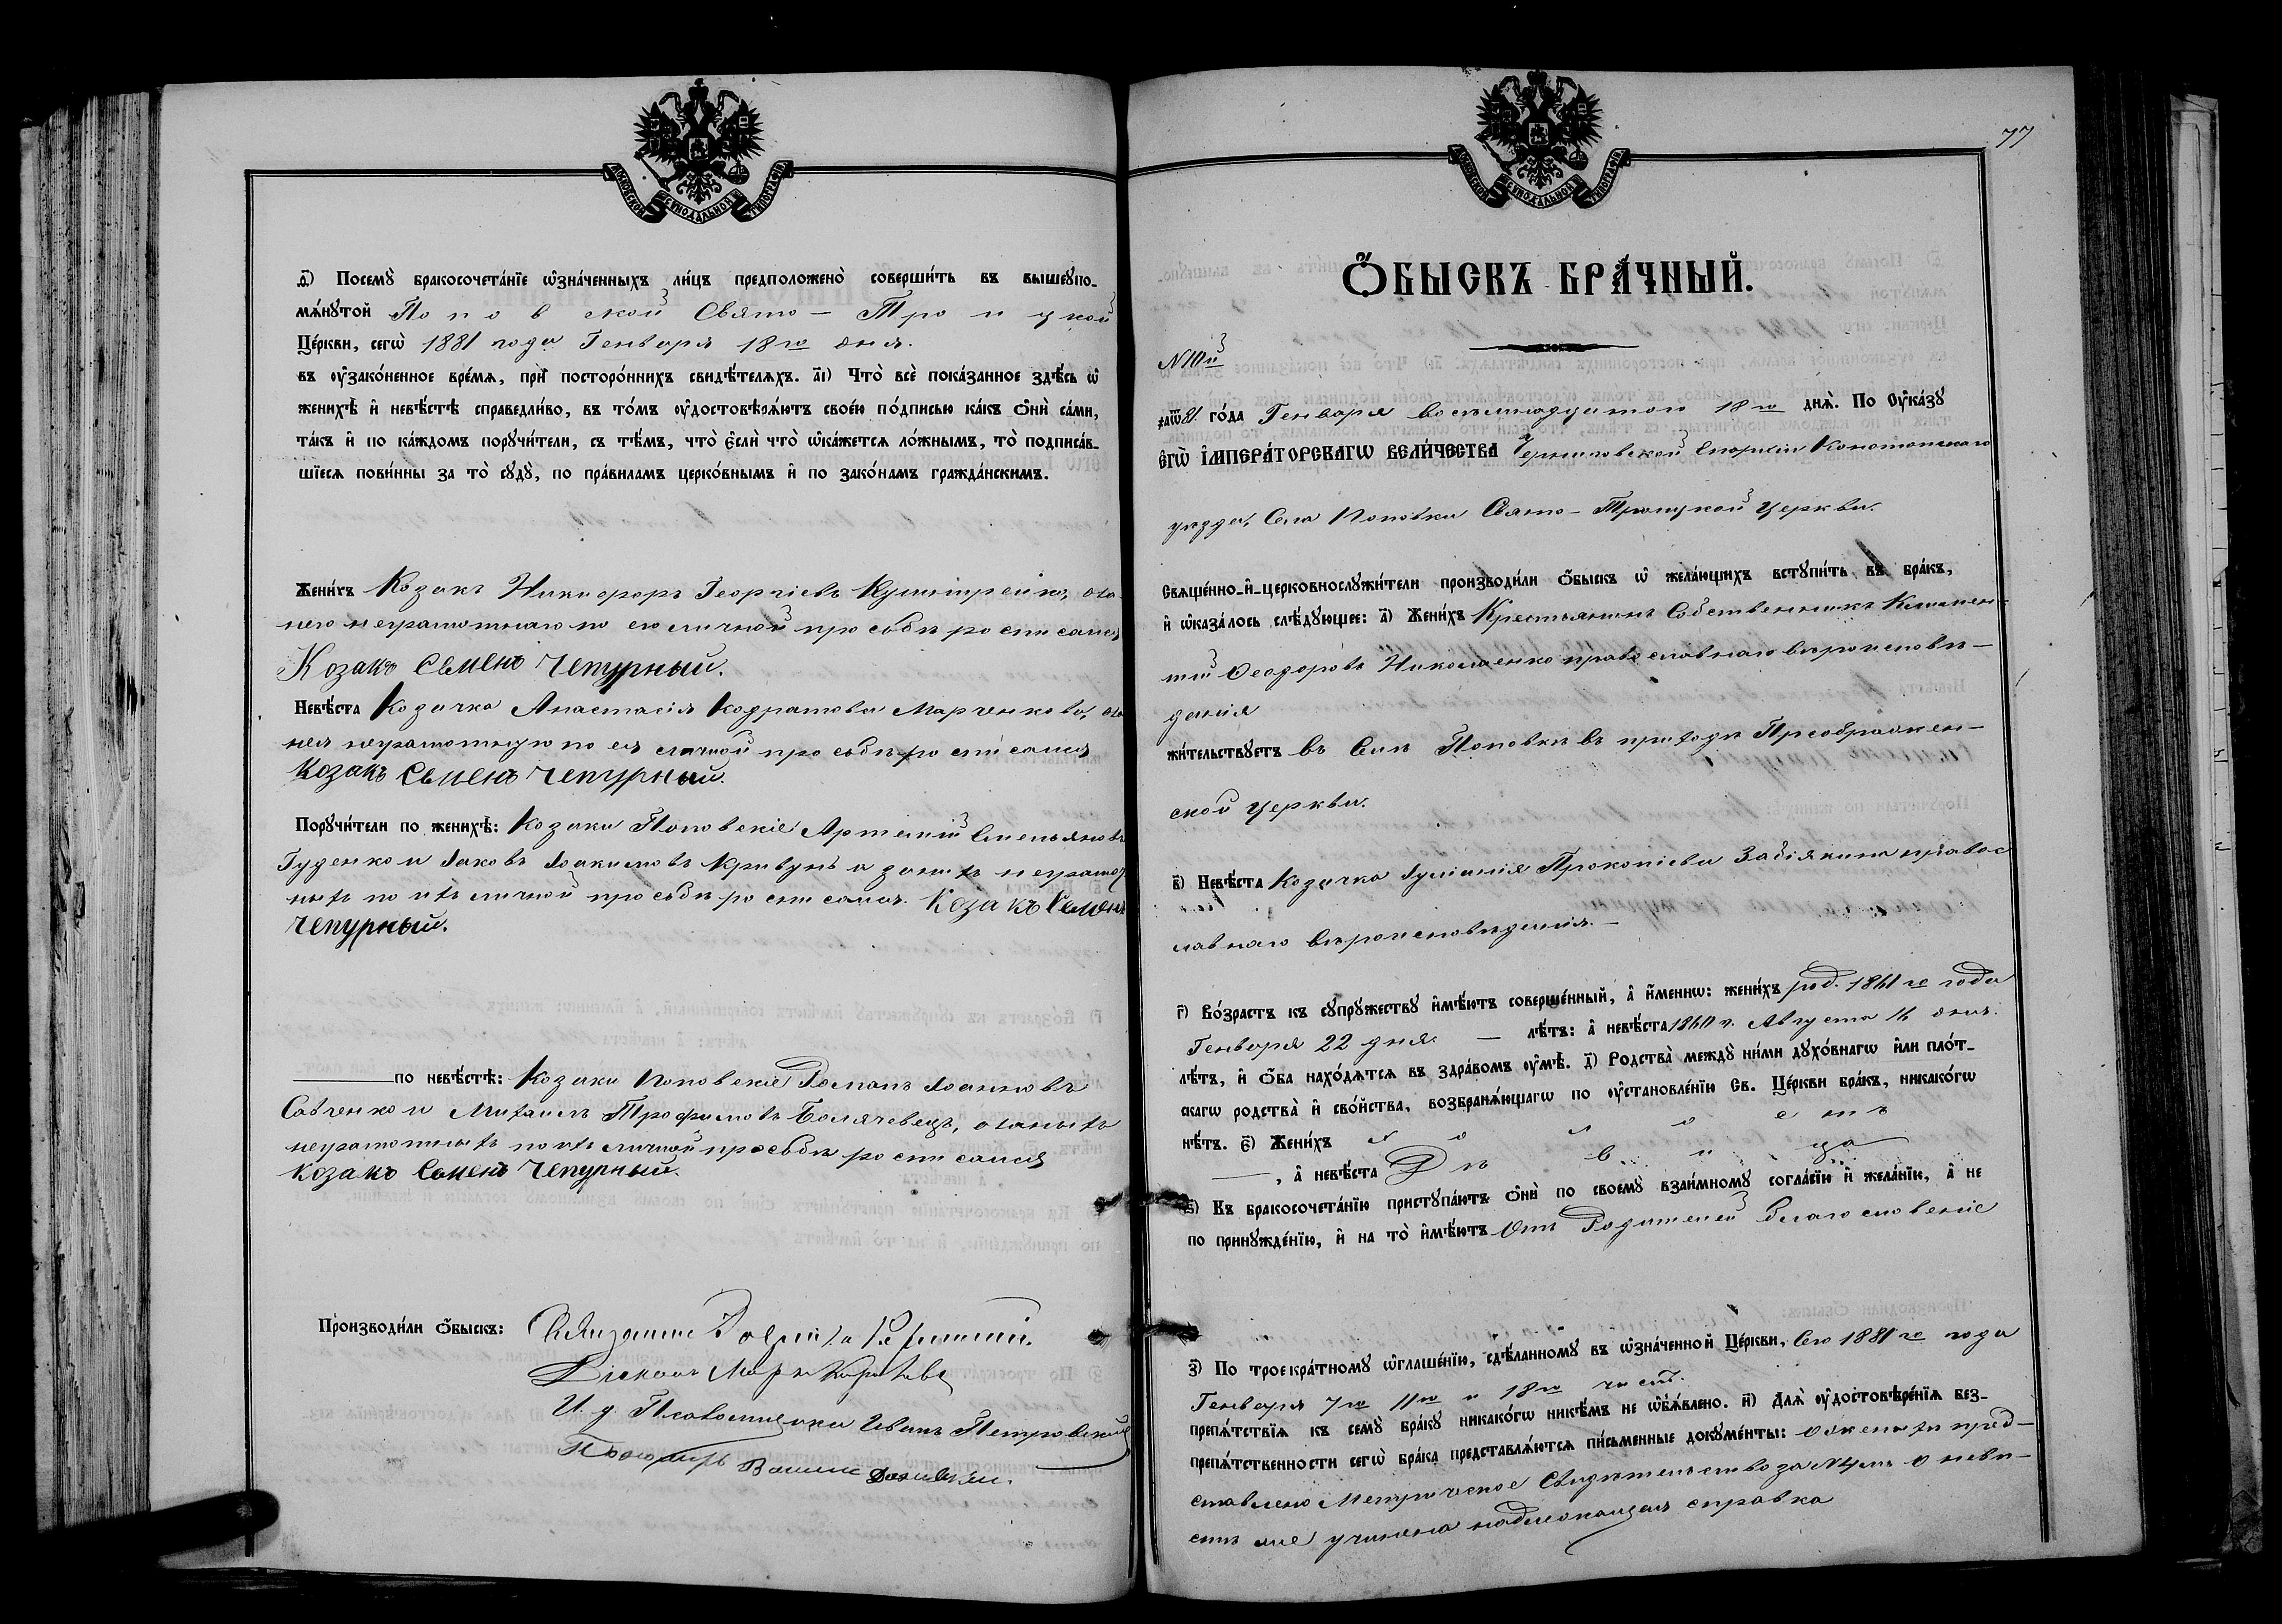 МОСКОВСКОЙ СѴНОДАЛЬНОЙ ТИПОГРАФІИ
д҃) Посемꙋ̀ бракосочета́нїе ѡ҆зна́ченныхъ ли́цъ предположено̀ соверши́ть въ вышеꙋпо-
мѧ́нꙋтой Поповской Свято-Троицкой
Це́ркви, сегѡ̀ 1881 года Генваря 18го дня.
въ ᲂу҆зако́ненное вре́мѧ, прѝ посторо́ннихъ свидѣ́телѧхъ. а҃і) Что̀ всѐ пока́занное здѣ́сь ѡ҆
женихѣ̀ и҆ невѣ́стѣ справедли́во, въ то́мъ ᲂу҆достовѣрѧ́ютъ свое́ю по́дписью ка́къ ѻ҆нѝ са́ми,
та́къ и҆ по ка́ждомъ порꙋчи́тели, съ тѣ́мъ, что̀ є҆́сли что̀ ѡ҆ка́жется ло́жнымъ, то̀ подписа́в-
шїеся пови́нны за то̀ сꙋдꙋ̀, по пра́виламъ церко́внымъ и҆ по зако́намъ гражда́нскимъ.
Жени́хъ Козакъ Никифоръ Георгіевъ Кушнѣренко, а за
него неграмотнаго по его личной просьбѣ росписался
Козакъ Семенъ Чепурный.
Невѣ́ста Козачка Анастасія Кодратова Марченкова, а за
нея неграмотную по ея личной просьбѣ росписался
Козакъ Семенъ Чепурный.
Порꙋчи́тели по женихѣ̀: Козаки Поповскіе Артемій Емельяновъ
Гуденко и Іаковъ Іоакимовъ Кривунъ а за нихъ неграмот
ныхъ по ихъ личной просьбѣ росписался. Козакъ Семенъ
Чепурный.
по невѣ́стѣ: Козаки Поповскіе Романъ Іоанновъ
Савченко и Михаилъ Трофимовъ Болячевецъ, а за нихъ
неграмотныхъ по ихъ личной просьбѣ росписался
Козакъ Семенъ Чепурный.
Производи́ли ѻ҆́быскъ: Священникъ
Діаконъ Марко
И. д. Псаломщика Иванъ Петровскій
Пономарь
77
МОСКОВСКОЙ СѴНОДАЛЬНОЙ ТИПОГРАФІИ
Ѻ҆́БЫСКЪ БРА́ЧНЫЙ.
N 10й
҂аѡ81 го́да Генваря восемнадцатого 18го днѧ̀. По Оу҆ка́зꙋ
Є҆гѡ̀ І҆мпера́торскагѡ Вели́чества Черниговской Епархіи Конотопскаго
уѣзда, Села Поповки Свято-Троицкой Церкви.
Свѧще́нно-и҆-церковнослꙋжи́тели производи́ли ѻ҆́быскъ ѡ҆ жела́ющихъ встꙋпи́ть въ бра́къ,
и҆ ѡ҆каза́лось слѣ́дꙋющее: а҃) Жени́хъ Крестьянинъ Собственникъ Климен-
тій Ѳеодоровъ Николаенко православнаго вѣроисповѣ-
данія
жи́тельствꙋетъ въ Селѣ Поповкѣ въ приходѣ Преображен-
ской Церкви.
в҃) Невѣ́ста Козачка Іуліанія Прокопіева Забіякина правос
лавнаго вѣроисповѣданія.-
г҃) Во́зрастъ къ сꙋпрꙋ́жествꙋ и҆мѣ́ютъ соверше́нный, а҆ и҆́меннѡ: жени́хъ род. 1861го года
Генваря 22 дня. - лѣ́тъ: а҆ невѣ́ста 1860 г. Августа 16 дня.
лѣ́тъ, и҆ ѻ҆́ба нахо́дѧтсѧ въ здра́вомъ ᲂу҆мѣ̀. д҃) Родства̀ междꙋ̀ ни́ми дꙋхо́внагѡ и҆лѝ пло́т-
скагѡ родства̀ и҆ сво́йства, возбранѧ́ющагѡ по ᲂу҆становле́нїю Св. Це́ркви бра́къ, никако́гѡ
нѣ́тъ. є҃) Жени́хъ холостъ
, а҆ невѣ́ста Дѣвица
ѕ҃) Къ бракосочета́нїю пристꙋпа́ютъ ѻ҆нѝ по своемꙋ̀ взаи́мномꙋ согла́сїю и҆ жела́нїю, а҆ не
по принꙋжде́нїю, и҆ на то̀ и҆мѣ́ютъ Отъ Родителей благословеніе
з҃) По троекра́тномꙋ ѡ҆глаше́нїю, сдѣ́ланномꙋ въ ѡ҆зна́ченной Це́ркви, Сего 1881го года
Генваря 7го 11го и 18го числ.
препѧ́тствїѧ къ семꙋ̀ бра́кꙋ никако́гѡ никѣ́мъ не ѡ҆б̾ѧ́влено. и҃) Длѧ̀ ᲂу҆достовѣре́нїѧ без-
препѧ́тственности сегѡ̀ бра́ка представлѧ́ютсѧ пи́сьменные докꙋме́нты: о женихѣ пред-
ставлено Метрическое Свидѣтельство за № о невѣ-
стѣ же учинена надлежащая справка